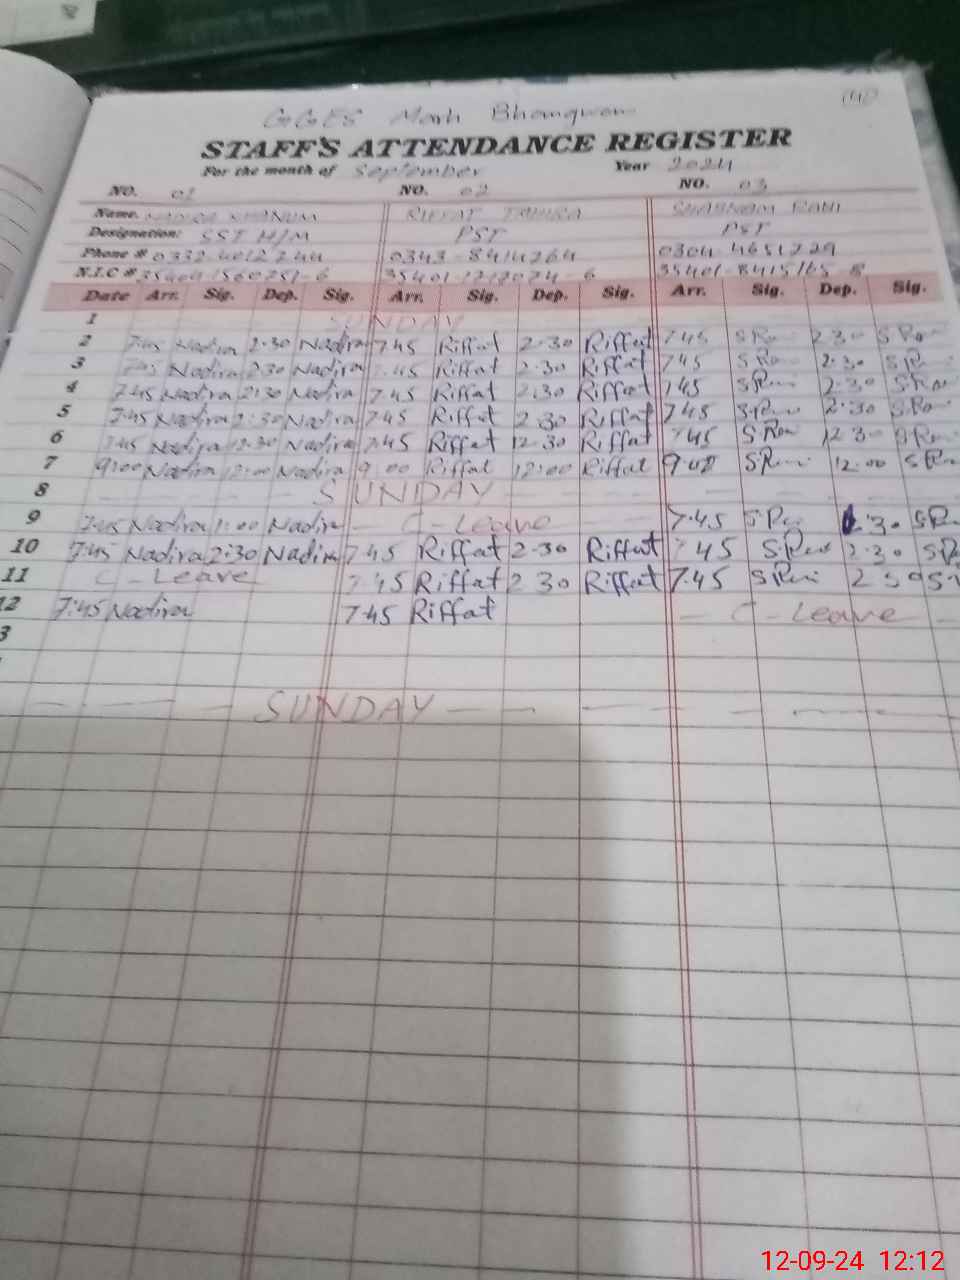 GGES Marh Bhangwan
STAFF'S ATTENDANCE REGISTER
For the month of September Year 2024
NO. 01 NO. 02 NO. 03
Name. NADIRA KHANUM RIFFAT TAHIRA SHABNAM RANI
Designation: SST H/M PST PST
Phone # 0343-8414264 0304-4651729
N.I.C #
Date Arr. Sig. Dep. Sig. Arr. Sig. Dep. Sig. Arr. Sig. Dep. Sig.
1 SUNDAY
2 7:45 Nadira 2:30 Nadira 7:45 Riffat 2:30 Riffat 7:45 2:30
3 7:45 Nadira 2:30 Nadira 7.45 Riffat 2.30 Riffat 7:45 2:30
4 7:45 Nadira 2:30 Nadira 7.45 Riffat 2:30 Riffat 7:45 2:30
5 7:45 Nadira 2:30 Nadira 7:45 Riffat 2:30 Riffat 7:45 2:30
6 7:45 Nadira 12:30 Nadira 7:45 Riffat 12:30 Riffat 7:45 12:30
7 9:00 Nadira 12:00 Nadira 9:00 Riffat 12:00 Riffat 9:00 12:00
8 SUNDAY
9 7:45 Nadira 1:00 Nadira C-Leave 7:45
10 7:45 Nadira 2:30 Nadira 7:45 Riffat 2:30 Riffat 7:45 2:30
11 C-Leave 7:45 Riffat 2:30 Riffat 7:45 2:30
12 7:45 Nadira 7:45 Riffat C-Leave
3
SUNDAY
12-09-24 12:12